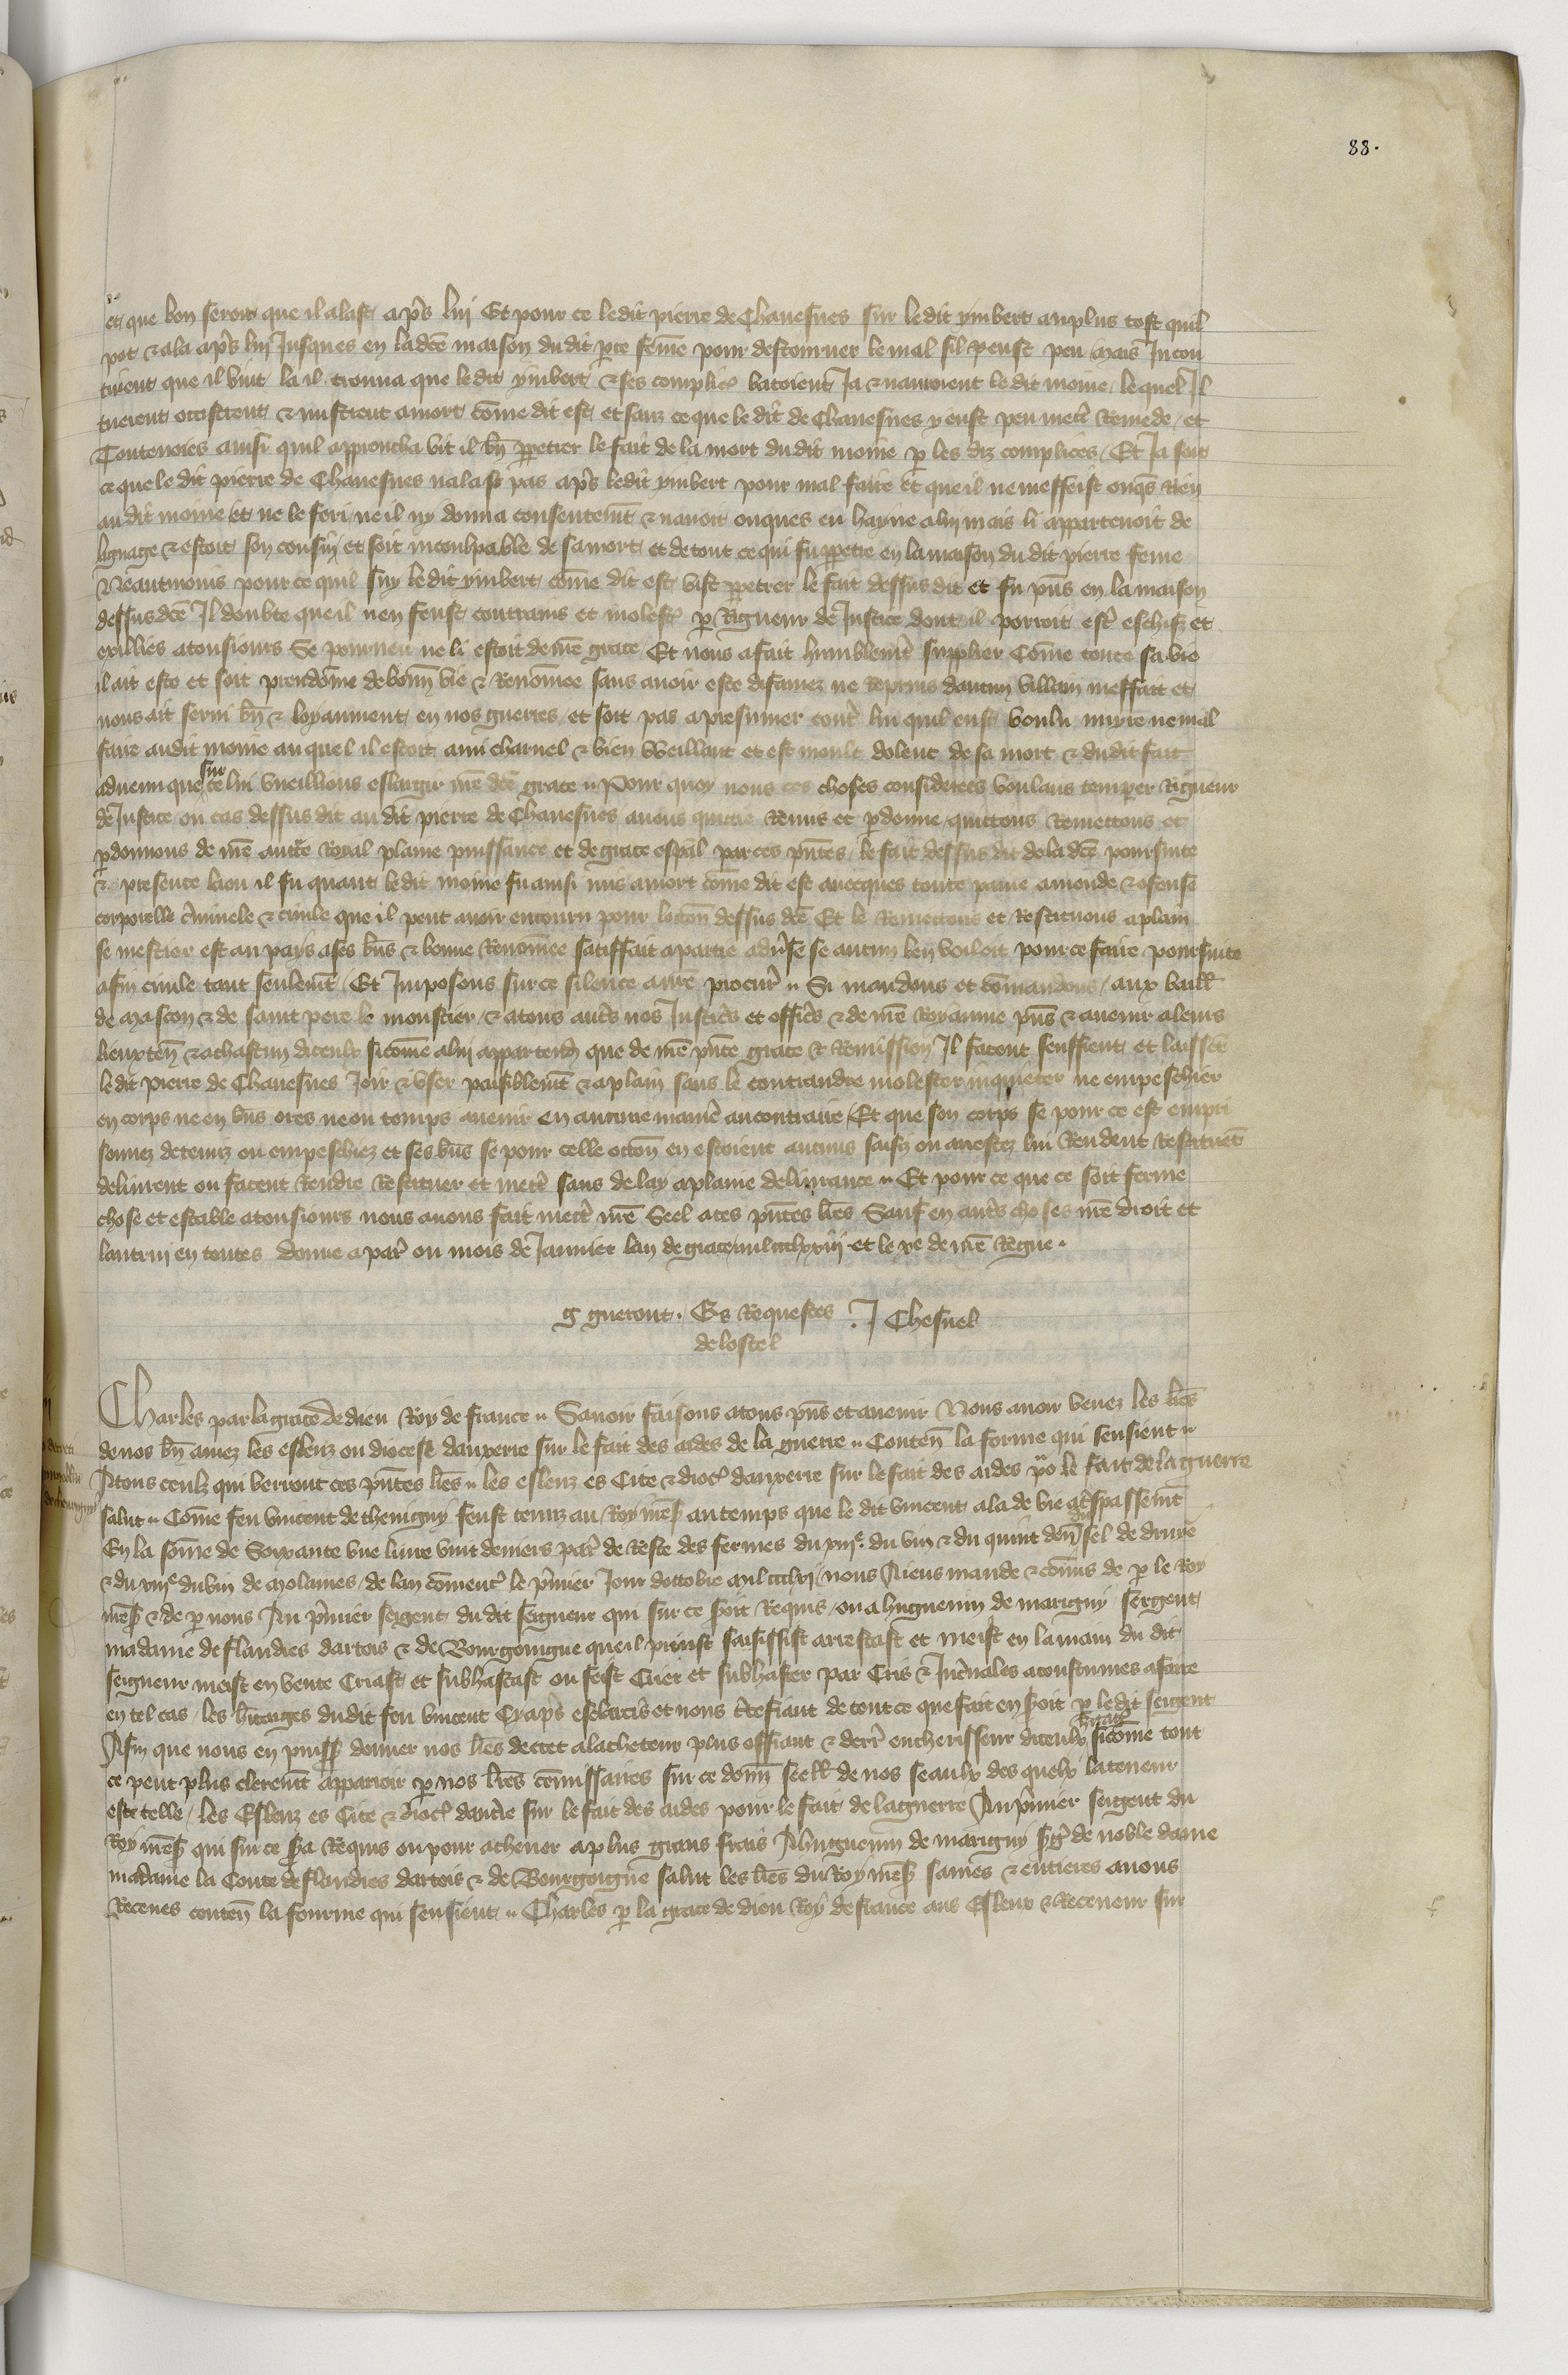 88.
et que bon seroit que il alast apres lui Et pour ce ledit pierre de Chavesnes sur ledit ymbert au plus tost quil
pot & ala apres lui Jusques en ladce maison dudit pre feme pour destourner le mal sil peust peu mais Incon
tinent que il vint la il trouva que ledit ymbert & ses complices batoient Ja & navroient ledit moine lequel Il
tuerent occistrent & mistrent a mort come dit est et sanz ce que le dit de Chavesnes y eust peu mectre Remede et
Toutevoies ainsi quil approucha vit il bn perpetrer le fait de la mort dudit moine p les diz complices Et Ja soit
ce que le dit pierre de Chavesnes nalast pas apres ledit ymbert pour mal faire et que il ne meffeist onqs Rien
au dit moine et ne le feri ne il ny donna consentemt & navoit onques eu hayne a lui mais li appartenoit de
lignage & estoit son cousin et soit incoulpable de sa mort et de tout ce qui fu perpetre en la maison du dit pierre feme
Neantmoins pour ce quil suy ledit ymbert come dit est vist perpetrer le fait dessus dit et fu pns en la maison
dessusdce Il doubte que il nen feust contrains et molestez p Rigueur de Justice dont il porroit estre eschis et
exilliez a tousiours Se pourveu ne li estoit de nre grace Et nous a fait humblemt supplier Come toute sa vie
il ait este et soit preudome de bonn vie & Renomee sans avoir este diffamez ne Repris daucun villain meffait et
nous ait servi bn & loyaument en nos guerres et soit pas a presumer contre lui quil eust voulu nuyre ne mal
faire audit moine auquel il estoit ami charnel & bien veillant et est moult dolent de sa mort & dudit fait
advenu que sur ce lui vueillions eslargir nre dce grace Pour quoy nous ces choses considerees voulans temperer Rigueur
de Justice ou cas dessus dit au dit pierre de Chavesnes avons quictie Remis et pdonne quictons Remectons et
pdonnons de nre auctte Royal plaine puissance et de grace espal par ces pntes le fait dessus dit de la dce poursuite
& presence la ou il fu quant ledit moine fu ainsi mis a mort come dit est avecques toute paine amende & offense
corporelle criminele & civile que il peut avoir encouru pour loccon dessus dce Et le Remectons et Restituons a plain
se mestier est au pays a ses bns & bonne Renomee satiffait a partie adverse se aucun len vouloit pour ce faire poursuite
afin civile tant seulemt Et Imposons sur ce silence a nre procur Si mandons et comandons aux baill
de mascon & de saint pere le moustier & a tous autres nos Justiciers et officiers & de nre Royaume pns & avenir a leurs
lieuxten & a chascun diceulx si come a lui appartendra que de nre pnte grace & Remission Il facent seuffrent et laissent
ledit pierre de Chavesnes Joir & user paisiblemt & a plain sans le contraindre molester inquieter ne empeschier
en corps ne en bns ores ne ou temps avenir en aucune maniere au contraire Et que son corps se pour ce est empri
sonnez detenuz ou empeschiez et ses bns se pour celle occon en estoient aucuns saisiz ou arrestez lui Rendent Restituent
delivrent ou facent Rendre Restituer et mectre sans delay a plaine delivrance Et pour ce que ce soit ferme
chose et estable a tousiours nous avons fait mectre nre Seel a ces pntes lres Sauf en autres choses nre droit et
lautrui en toutes donne a paris ou mois de Janvier lan de grace mil ccclxxiij et le xe de nre Regne
g gueront. Es Requestes
de lostel
J Chesnel
Charles par la grace de dieu Roy de france Savoir faisons a tous pns et avenir Nous avoir veuez les lres
de nos bn amez les esleuz ou diocese dauxerre sur le fait des aides de la guerre Conten la forme qui sensuient
A tous ceulx qui verront ces pntes lres les esleuz es Cite & dioc dauxerre sur le fait des aides po le fait de la guerre
salut Come feu vincent de thenigny feust tenuz au Roy nres au temps que le dit vincent ala de vie a trespassemt
En la some de Soixante une livre vint deniers par de Reste des fermes du xiije du vin & du quint du sel de druie
& du xiije du vin de molames de lan comencant le premier Jour doctobre mil ccclxj nous Aiens mande & comis de p le Roy
nres & de p nous Au premier sergent du dit seigneur qui sur ce seroit Requis ou a huguenin de marigny sergent
madame de flandres dartois & de Bourgoingne que il preinst saisissist arrestast et meist en la main du dit
seigneur meist en vente Criast et subhastast ou feist Crier et subhaster par Cris & Intervales acoustumes a faire
en tel cas les heritages dudit feu vincent Cy apres esclarcis et nous certefiant de tout ce que fait en seroit p ledit sergent
Afin que nous en puissions donner nos lres decret a lacheteur plus offrant & derrenier encherisseur diceulx si come tout
ce peut plus clerement apparoir p nos lres comissaires sur ce donn seell de nos seaulx des quelx la teneur
este telle les Esleuz es Cite & dioc daucerre sur le fait des aides pour le fait de la guerre Au premier sergent du
Roy nres qui sur ce sera Requis ou pour achever a plus grans frais A huguenin de marigny serg de noble dame
madame la Contesse de flandres dartois & de Bourgoigne salut les lres du Roy nres saines & entieres avons
Receues conten la fourme qui sensuient Charles p la grace de dieu Roy de france aus Esleuz & Receveur sur